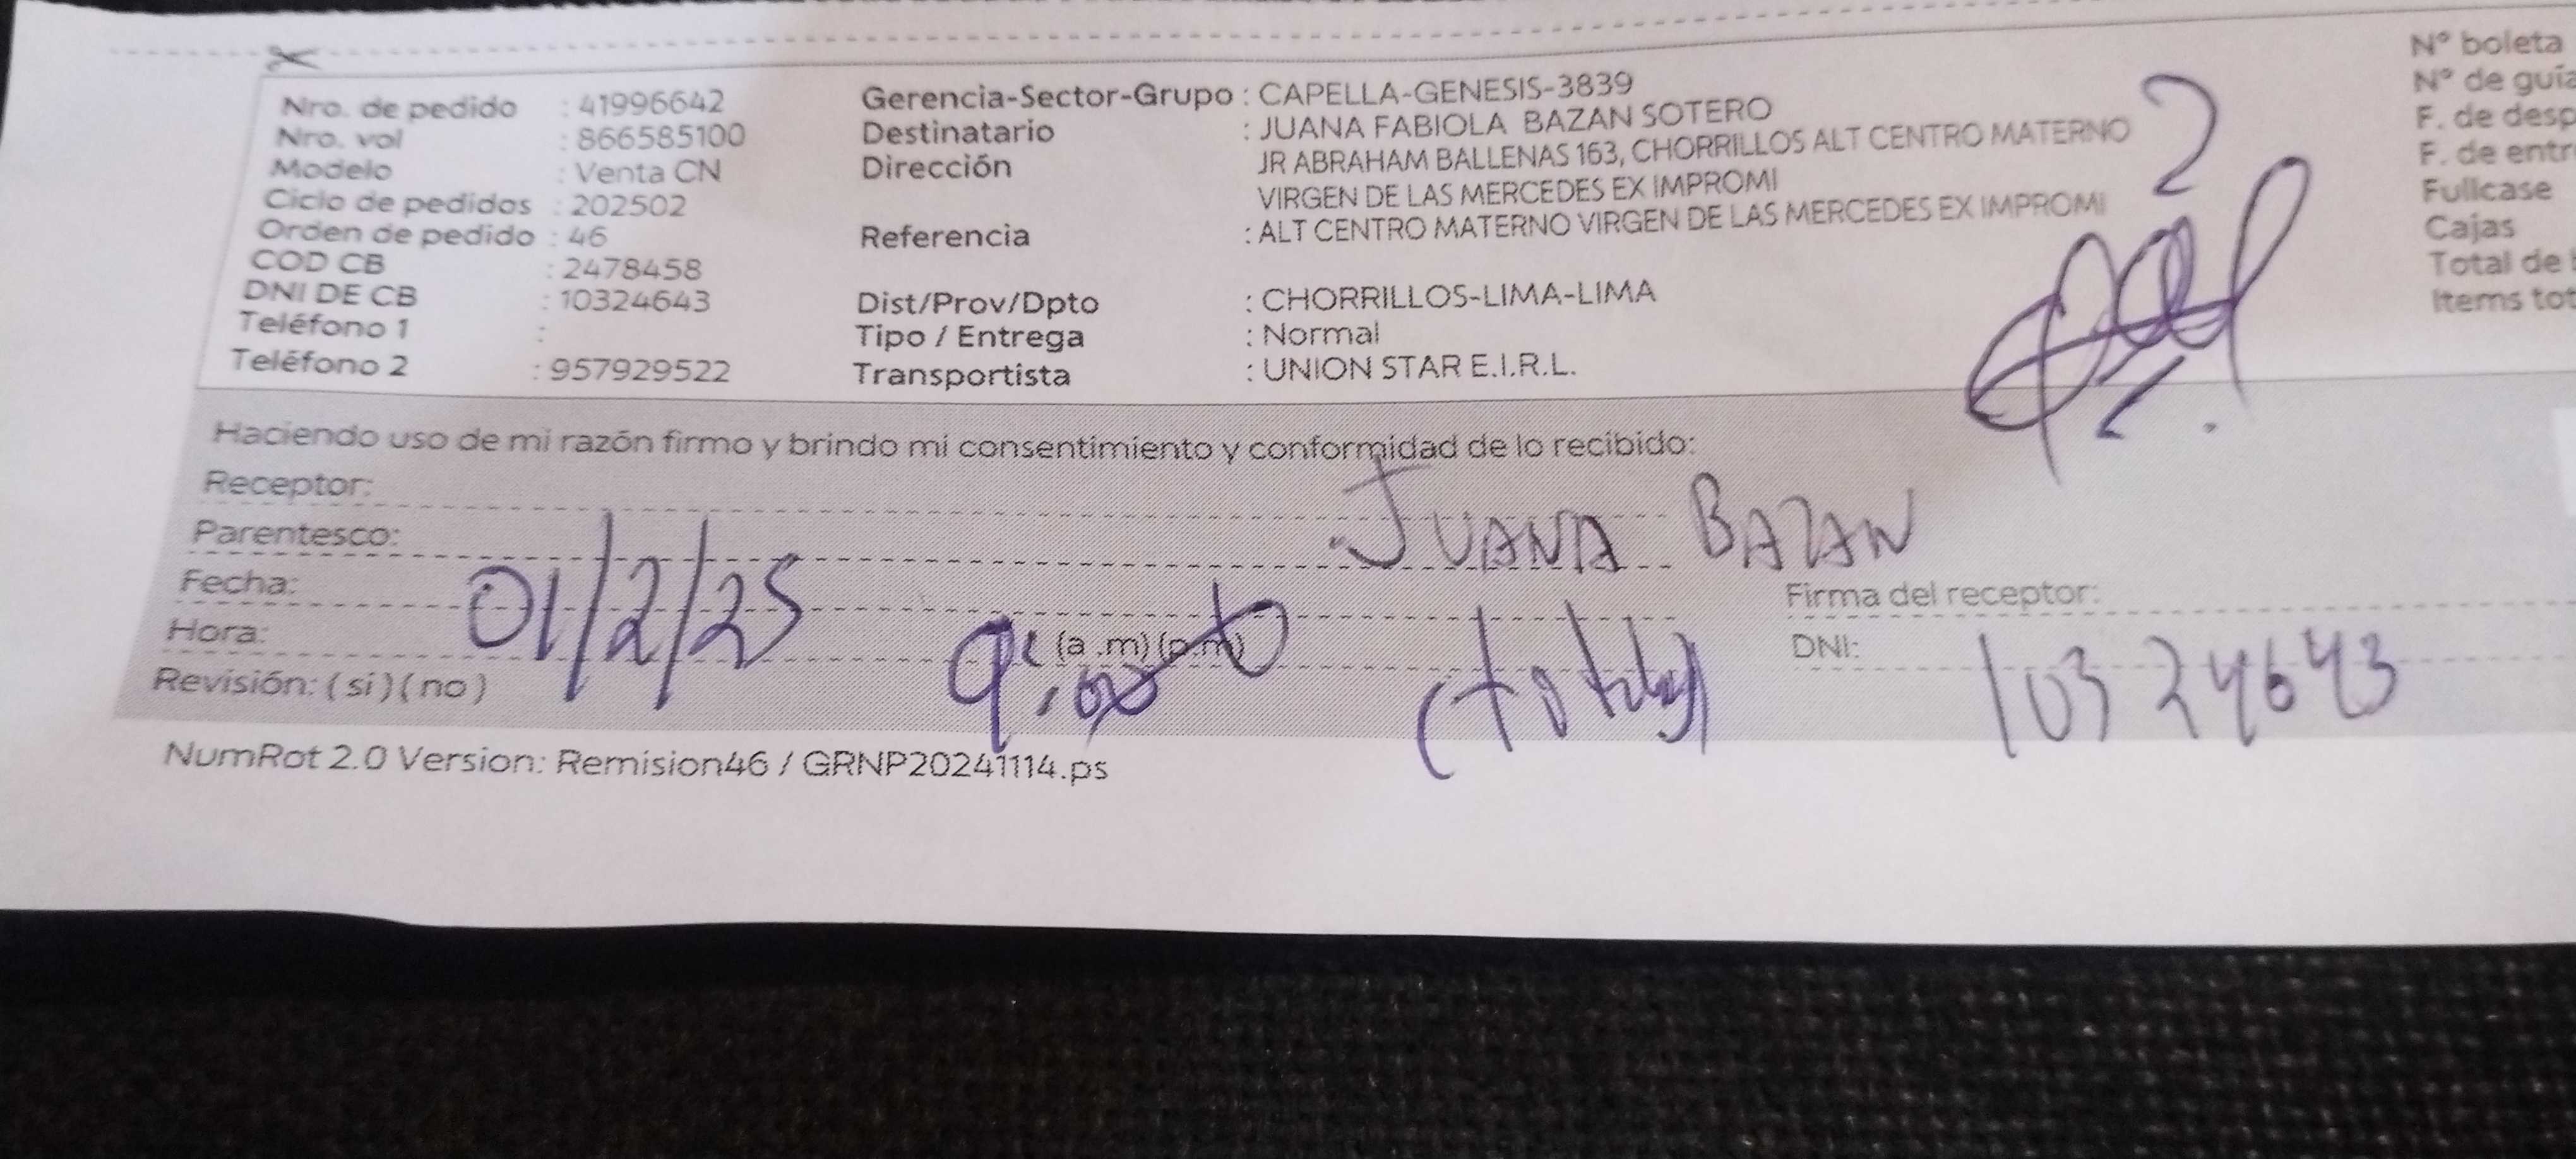 Nro. de pedido : 41996642
Nro. vol : 866585100
Modelo : Venta CN
Ciclo de pedidos : 202502
Orden de pedido : 46
COD CB : 2478458
DNI DE CB : 10324643
Teléfono 1 :
Teléfono 2 : 957929522
Gerencia-Sector-Grupo : CAPELLA-GENESIS-3839
Destinatario : JUANA FABIOLA BAZAN SOTERO
Dirección JR ABRAHAM BALLENAS 163, CHORRILLOS ALT CENTRO MATERNO
VIRGEN DE LAS MERCEDES EX IMPROMI
Referencia : ALT CENTRO MATERNO VIRGEN DE LAS MERCEDES EX IMPROMI
Dist/Prov/Dpto : CHORRILLOS-LIMA-LIMA
Tipo / Entrega : Normal
Transportista : UNION STAR E.I.R.L.
Nº boleta
Nº de guía
F. de desp
F. de entr
Fullcase
Cajas
Total de
Items tot
2
Haciendo uso de mi razón firmo y brindo mi consentimiento y conformidad de lo recibido:
Receptor:
Parentesco: JUANA BAZAN
Fecha: 01/2/25
Firma del receptor:
Hora: (a .m) (p.m)
DNI: 10324643
Revisión: ( si ) ( no )
NumRot 2.0 Version: Remision46 / GRNP20241114.ps